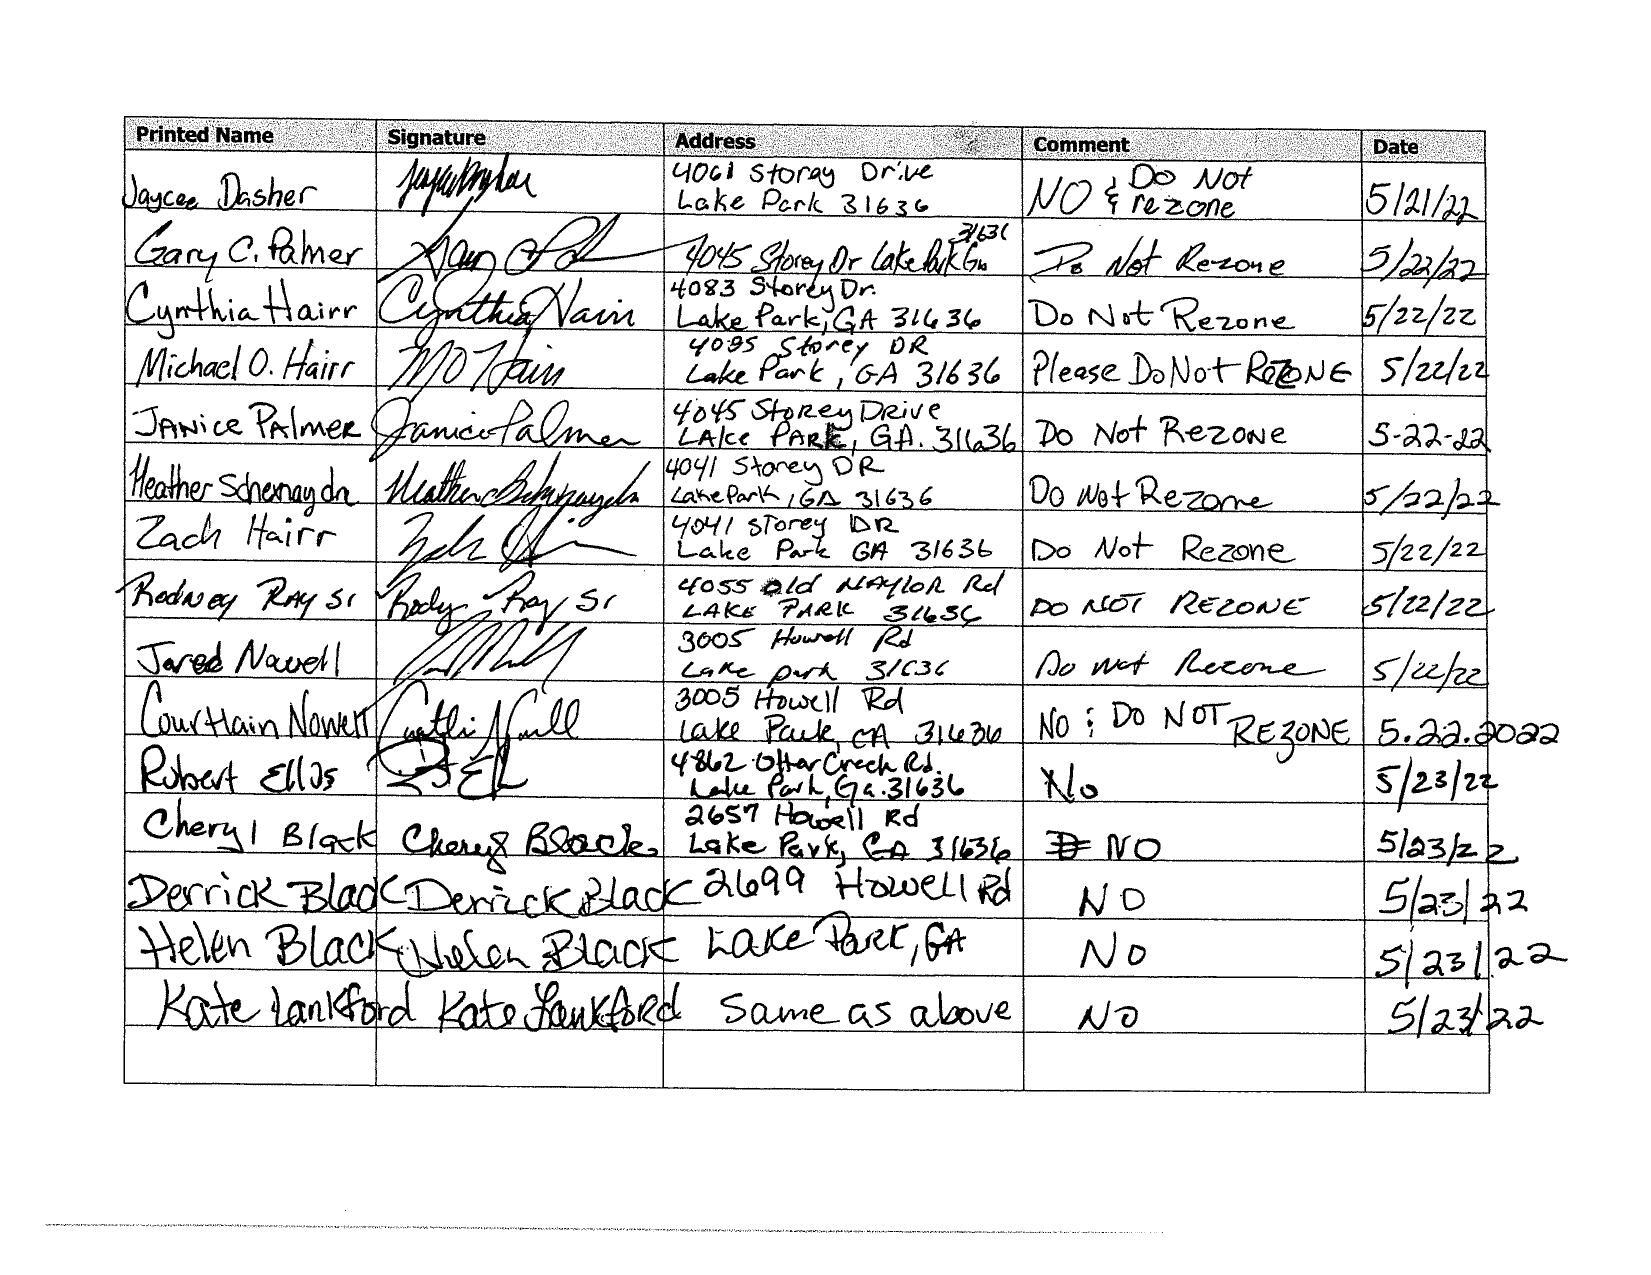 Printed Name Signature Address Comment Date
4061 Storey Drive Do Not
Jaycee Dasher Lake Park 31636 NO & rezone 5/21/22
31636
Gary C. Palmer 4045 Storey Dr Lake Park Ga Do Not Rezone 5/22/22
4083 Storey Dr.
Cynthia Hairr Cynthia Hairr Lake Park, GA 31636 Do Not Rezone 5/22/22
4085 Storey DR
Michael O. Hairr MO Hairr Lake Park, GA 31636 Please Do Not REZONE 5/22/22
4045 Storey Drive
JANice PAlmer Janice Palmer LAke PARK, GA. 31636 Do Not Rezone 5-22-22
4041 Storey DR
Heather Schexnaydre Lake Park, GA 31636 Do Not Rezone 5/22/22
4041 Storey DR
Zach Hairr Lake Park GA 31636 Do Not Rezone 5/22/22
4055 old NAYlOR Rd
Rodney RAY Sr Rodney Ray Sr LAKE PARK 31636 DO NOT REZONE 5/22/22
3005 Howell Rd
Jared Nowell Lake park 31636 Do Not Rezone 5/22/22
3005 Howell Rd
Courtlain Nowell Lake Park, GA 31636 NO ; DO NOT REZONE 5.22.2022
4862 Otter Creek Rd.
Robert Ellos Lake Park, Ga. 31636 No 5/23/22
2657 Howell Rd
Cheryl Black Cheryl Black Lake Park, GA 31636 NO 5/23/22
Derrick Black Derrick Black 2699 Howell Rd NO 5/23/22
Helen Black Helen Black Lake Park, GA NO 5/23/22
Kate Lankford Kate Lankford Same as above NO 5/23/22